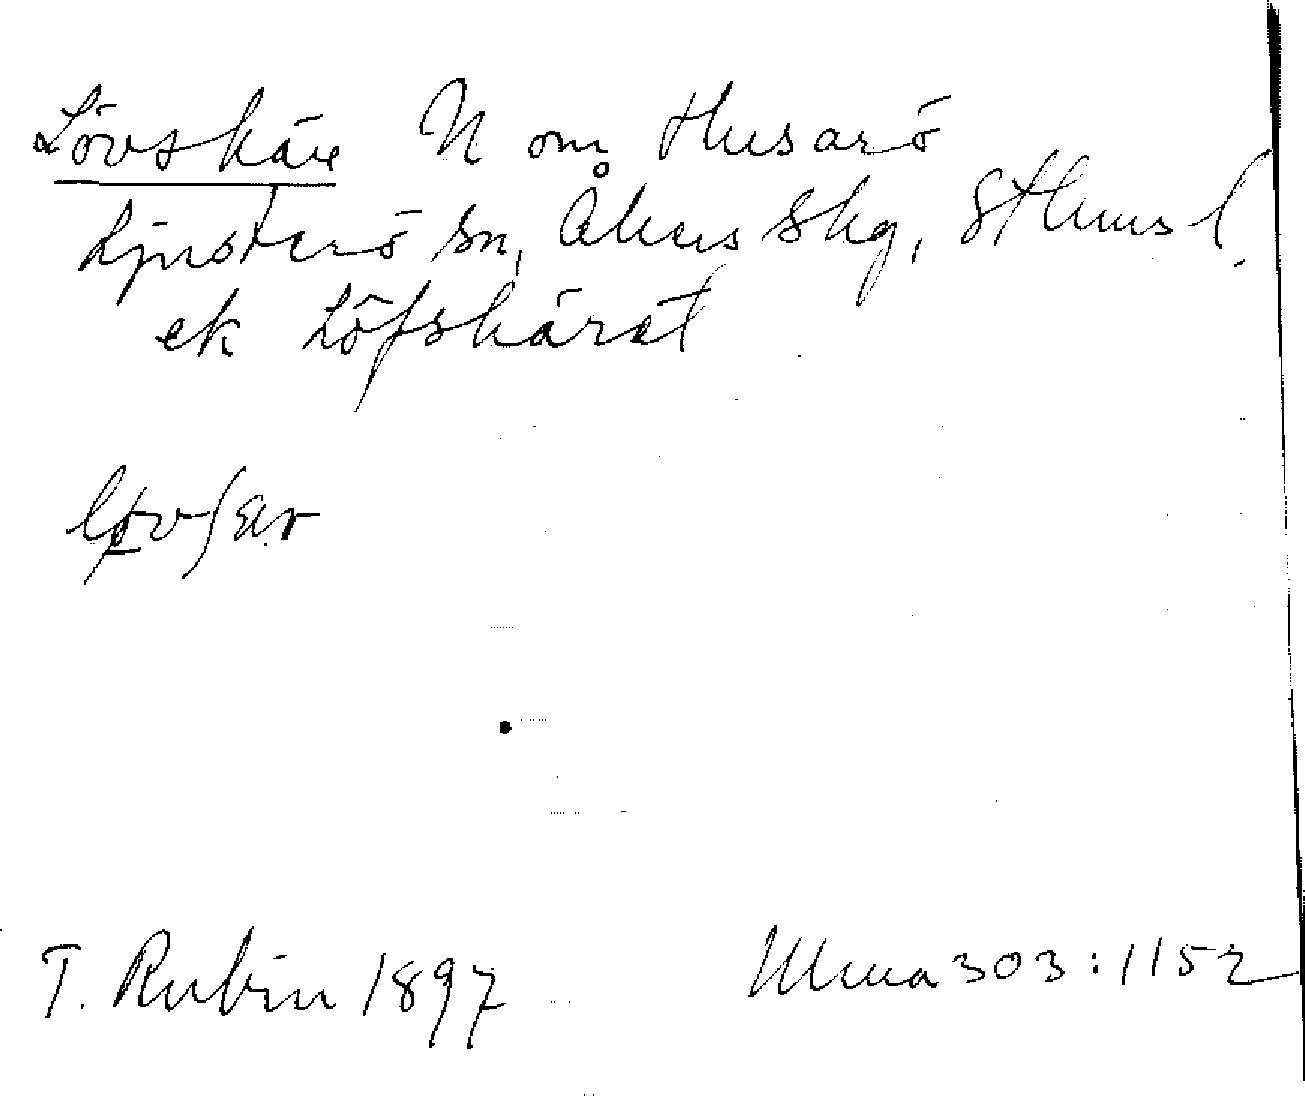 Lövskär N om Husarö
Ljusterö sn, Åkers Skg, Sthms l.
ek Löfskäret
T. Rubin 1897
Ulma 303:1152